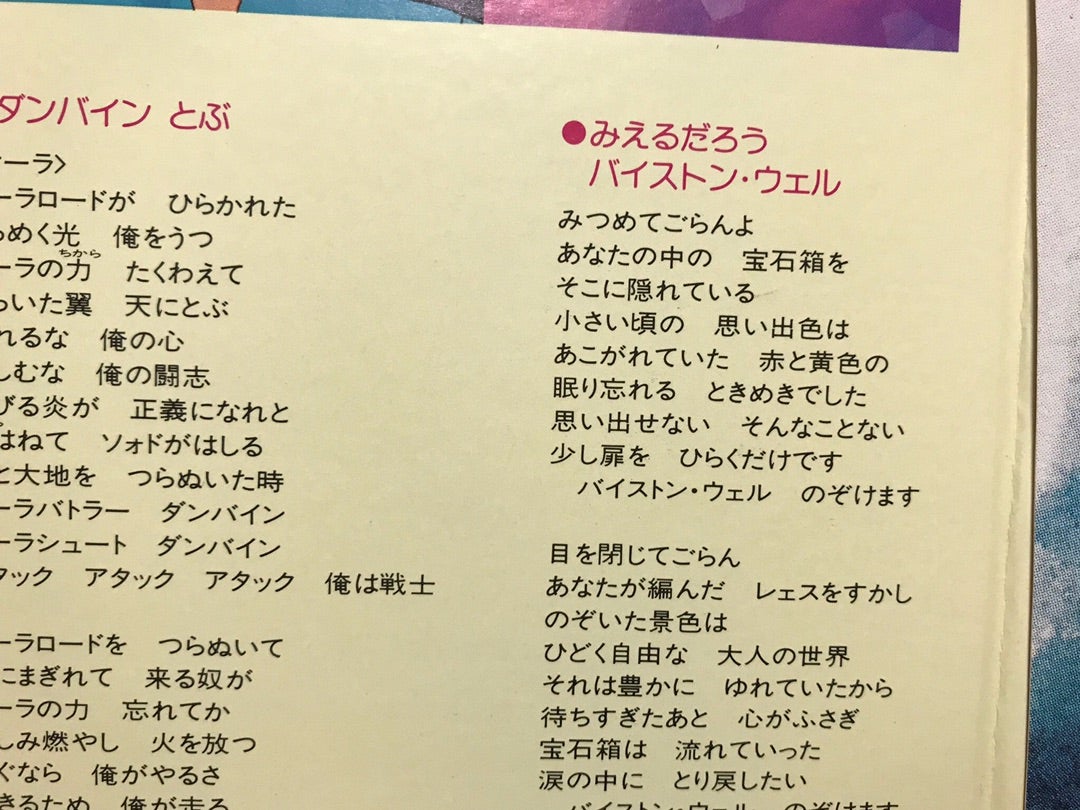 ダンバイン とぶ
ーラ〉
ーラロードが ひらかれた
めく光 俺をうつ
ーラの力 たくわえて
ちから
いた翼 天にとぶ
れるな 俺の心
しむな 俺の闘志
びる炎が 正義になれと
はねて ソォドがはしる
と大地を つらぬいた時
ーラバトラー ダンバイン
ーラシュート ダンバイン
タック アタック アタック 俺は戦士
ーラロードを つらぬいて
にまぎれて 来る奴が
ーラの力 忘れてか
しみ燃やし 火を放つ
ぐなら 俺がやるさ
きるため 俺が走る
●みえるだろう
バイストン・ウェル
みつめてごらんよ
あなたの中の 宝石箱を
そこに隠れている
小さい頃の 思い出色は
あこがれていた 赤と黄色の
眠り忘れる ときめきでした
思い出せない そんなことない
少し扉を ひらくだけです
バイストン・ウェル のぞけます
目を閉じてごらん
あなたが編んだ レェスをすかし
のぞいた景色は
ひどく自由な 大人の世界
それは豊かに ゆれていたから
待ちすぎたあと 心がふさぎ
宝石箱は 流れていった
涙の中に とり戻したい
バイストン・ウェル のぞけます